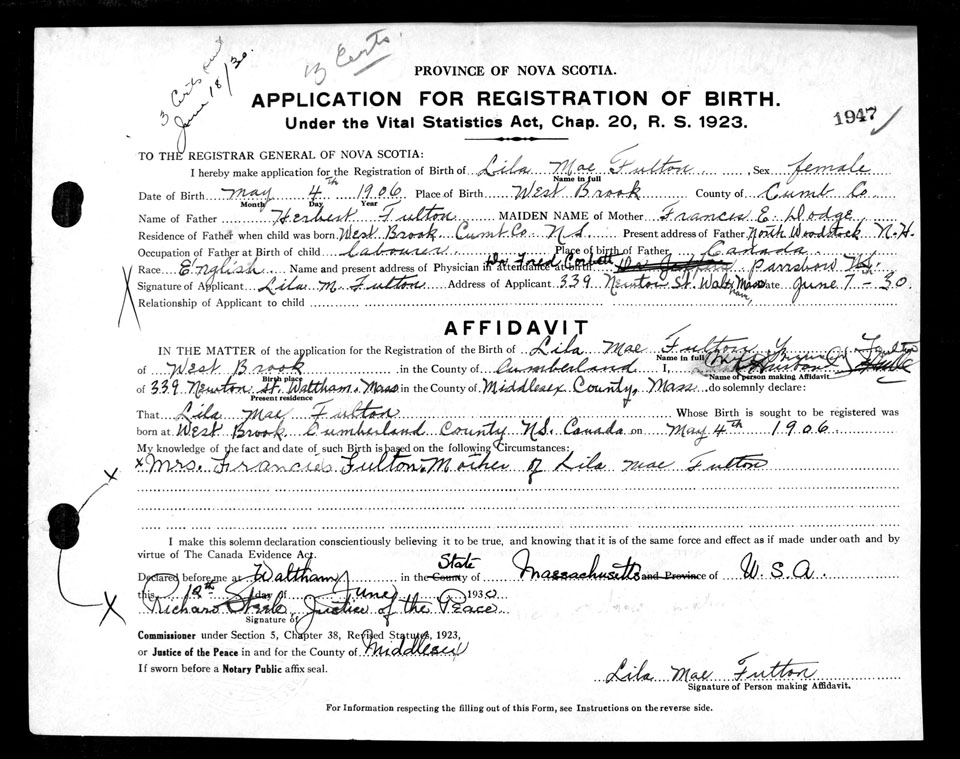 3 Certs
June 18/30.
13 Certs.
PROVINCE OF NOVA SCOTIA.
APPLICATION FOR REGISTRATION OF BIRTH.
Under the Vital Statistics Act, Chap. 20, R. S. 1923.
1947
TO THE REGISTRAR GENERAL OF NOVA SCOTIA:
I hereby make application for the Registration of Birth of Lila Mae Fulton Sex female
Name in full
Date of Birth May 4th 1906 Place of Birth West Brook County of Cumb Co
Month Day Year
Name of Father Herbert Fulton MAIDEN NAME of Mother Francis E. Dodge
Residence of Father when child was born West Brook Cumb. Co N.S. Present address of Father North Woodstock N.H.
Occupation of Father at Birth of child labourer Place of birth of Father Canada
Race English Name and present address of Physician in attendance at birth Dr Fred Corbett Parrsboro N.S.
Signature of Applicant Lila M. Fulton Address of Applicant 339 Newton St. Waltham, Mass Date June 7-30
Relationship of Applicant to child
AFFIDAVIT
IN THE MATTER of the application for the Registration of the Birth of Lila Mae Fulton
Name in full
of West Brook in the County of Cumberland I, Mrs Fulton
Birth place Name of person making Affidavit
of 339 Newton St. Waltham, Mass in the County of Middlesex County, Mass do solemnly declare:
Present residence
That Lila Mae Fulton Whose Birth is sought to be registered was
born at West Brook Cumberland County N.S. Canada on May 4th 1906.
My knowledge of the fact and date of such Birth is based on the following Circumstances:
x Mrs. Francis Fulton, Mother of Lila Mae Fulton
I make this solemn declaration conscientiously believing it to be true, and knowing that it is of the same force and effect as if made under oath and by
virtue of The Canada Evidence Act.
Declared before me at Waltham in the County State of Massachusetts and Province of U.S.A.
this 12th day of June 1930
Richard Steele, Justice of the Peace
Signature of
Commissioner under Section 5, Chapter 38, Revised Statutes, 1923,
or Justice of the Peace in and for the County of Middlesex
If sworn before a Notary Public affix seal.
Lila Mae Fulton
Signature of Person making Affidavit.
For Information respecting the filling out of this Form, see Instructions on the reverse side.